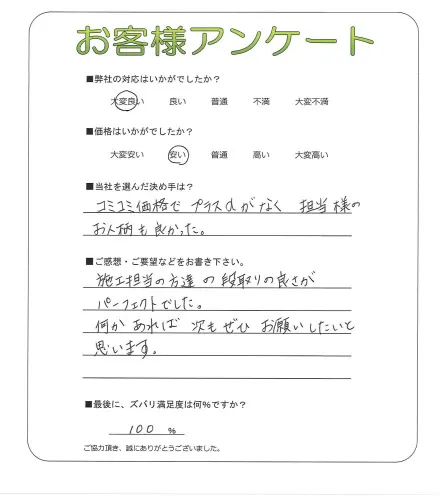 お客様アンケート
■弊社の対応はいかがでしたか？
大変良い 良い 普通 不満 大変不満
■価格はいかがでしたか？
大変安い 安い 普通 高い 大変高い
■当社を選んだ決め手は？
コミコミ価格で プラスαがなく 担当様の
お人柄も良かった。
■ご感想・ご要望などをお書き下さい。
施工担当の方達の段取りの良さが
パーフェクトでした。
何かあれば 次もぜひ お願いしたいと
思います。
■最後に、ズバリ満足度は何％ですか？
100 %
ご協力頂き、誠にありがとうございました。